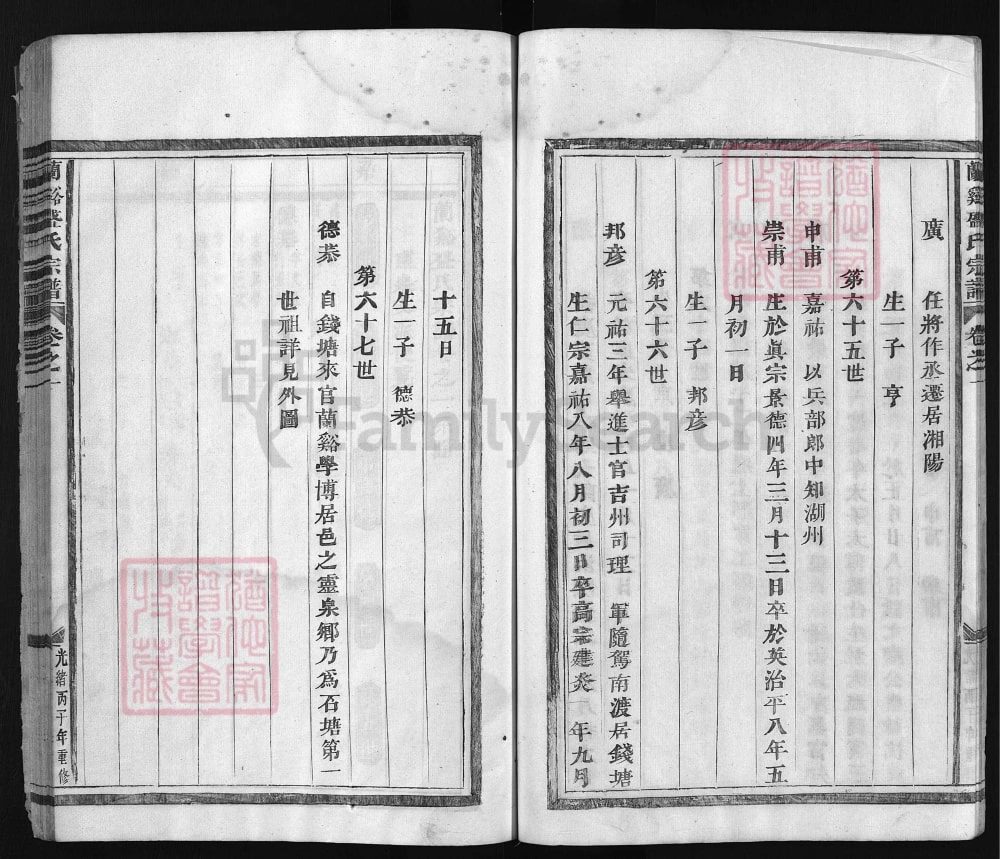 廣　任將作丞遷居湘陽
生一子　亨
第六十五世
申甫　嘉祐　以兵部郎中知湖州
崇甫　生於眞宗景德四年三月十三日卒於英治平八年五
月初一日
生一子　邦彦
第六十六世
邦彦　元祐三年舉進士官吉州司理　軍隨駕南渡居錢塘
生仁宗嘉祐八年八月初三日卒高宗建炎　年九月
十五日
生一子　德恭
第六十七世
德恭　自錢塘來官蘭谿學博居邑之靈泉鄉乃爲石塘第一
世祖詳見外圖
蘭谿盛氏宗譜　卷之一
光緒丙子年重修
譜學會
收藏
FamilySearch